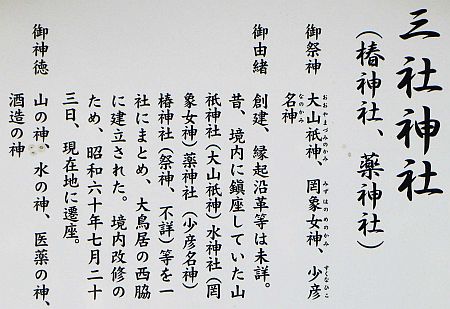 三社神社
(椿神社、薬神社)
御祭神
大山祇神、罔象女神、少彦
おおやまづみのかみ
みずはのめのかみ
すくなひこ
名神
なのかみ
御由緒
創建、縁起沿革等は未詳。
昔、境内に鎮座していた山
祇神社(大山祇神)水神社(罔
象女神)薬神社(少彦名神)
椿神社(祭神、不詳)等を一
社にまとめ、大鳥居の西脇
に建立された。境内改修の
ため、昭和六十年七月二十
三日、現在地に遷座。
御神徳
山の神。水の神、医薬の神、
酒造の神